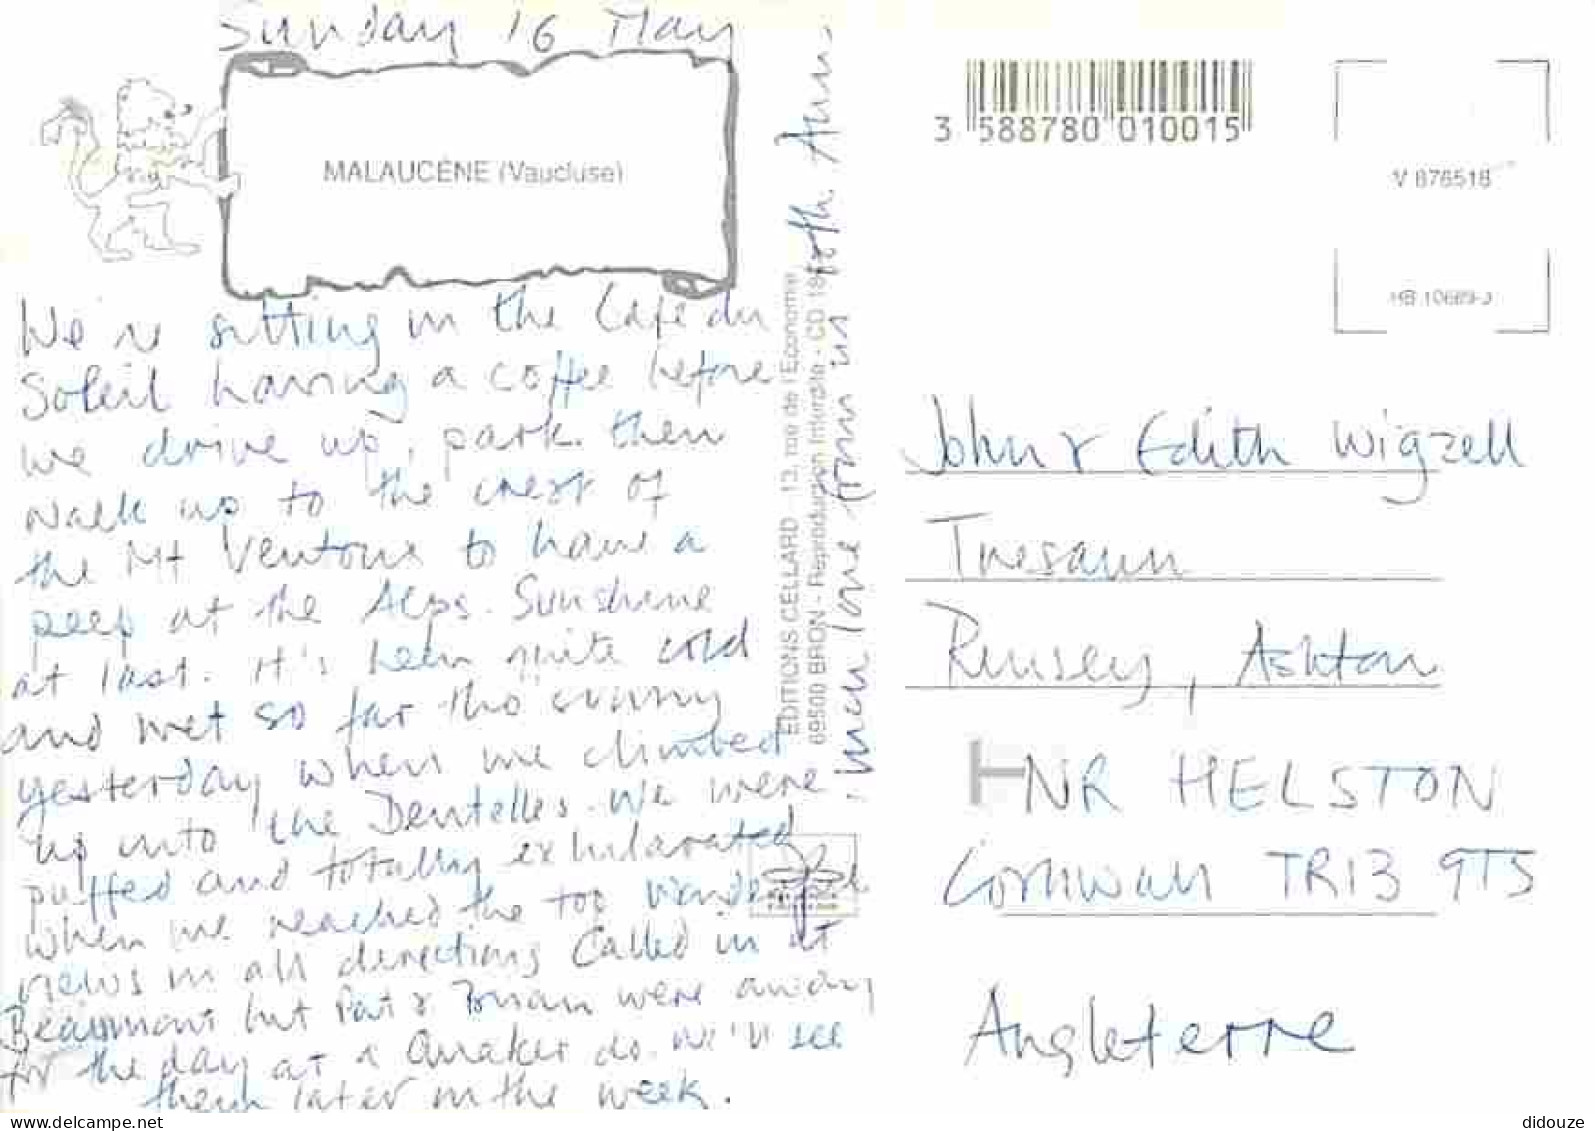 Sunday 16 May
MALAUCÈNE (Vaucluse)
We're sitting in the Café du
Soleil having a coffee before
we drive up, park then
walk up to the crest of
the Mt Ventoux to have a
peep at the Alps. Sunshine
at last. It's been quite cold
and wet so far tho' sunny
yesterday when we climbed
up into the Dentelles. We were
puffed and totally exhilarated
when we reached the top wonderful
views in all directions Called in at
Beaumont but Pat & Brian were away
for the day at a Quaker do. We'll see
them later in the week.
much love from us both Ann.
EDITIONS CELLARD - 13, rue de l'Economie
69500 BRON - Reproduction Interdite - CD
3 588780 010015
V 876518
HB 10669-J
John & Edith Wigzell
Tresaun
Rinsey, Ashton
NR HELSTON
Cornwall TR13 9TS
Angleterre
www.delcampe.net
didouze